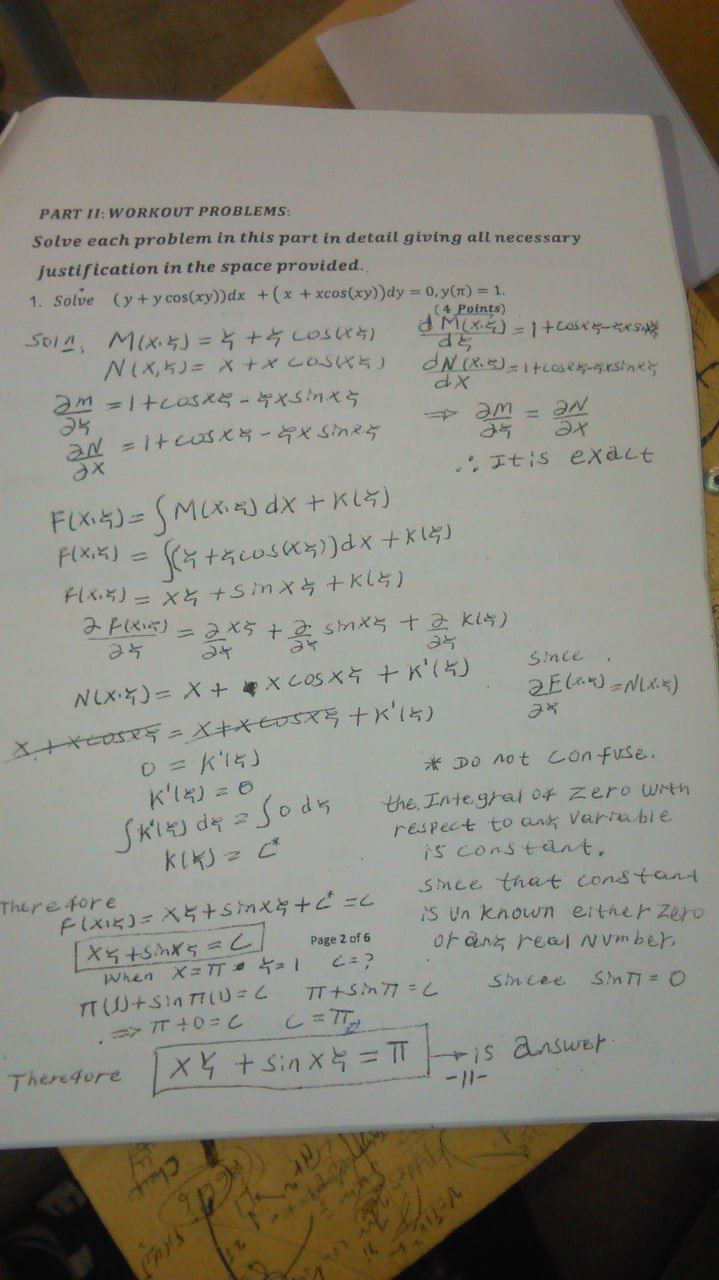 PART II: WORKOUT PROBLEMS:
Solve each problem in this part in detail giving all necessary
justification in the space provided.
1. Solve (y + y cos(xy))dx + (x + xcos(xy))dy = 0, y(π) = 1.
(4 Points)
Soln, M(x,y) = y + y cos(xy)
N(x,y) = x + x cos(xy)
∂m/∂y = 1 + cosxy - yx sinxy
∂N/∂x = 1 + cosxy - yx sinxy
dM(x,y)/dy = 1 + cosxy - yxsinxy
dN(x,y)/dx = 1 + cosxy - yxsinxy
⇒ ∂M/∂y = ∂N/∂x
∴ It is exact
F(x,y) = ∫M(x,y) dx + K(y)
F(x,y) = ∫(y + y cos(xy))dx + K(y)
F(x,y) = xy + sinxy + K(y)
∂F(x,y)/∂y = ∂/∂y xy + ∂/∂y sinxy + ∂/∂y K(y)
N(x,y) = x + x cosxy + K'(y)
since
∂F(x,y)/∂y = N(x,y)
x + x cosxy = x + x cosxy + K'(y)
0 = K'(y)
K'(y) = 0
∫K'(y) dy = ∫0 dy
K(y) = C*
* Do not confuse.
the Integral of zero with
respect to any variable
is constant.
since that constant
is un known either zero
or any real Number.
Therefore
F(x,y) = xy + sinxy + C* = C
xy + sinxy = C
Page 2 of 6
When x = π y = 1 C = ?
π(1) + sinπ(1) = C π + sinπ = C sincee sinπ = 0
⇒ π + 0 = C C = π
Therefore xy + sinxy = π → is answer
-11-